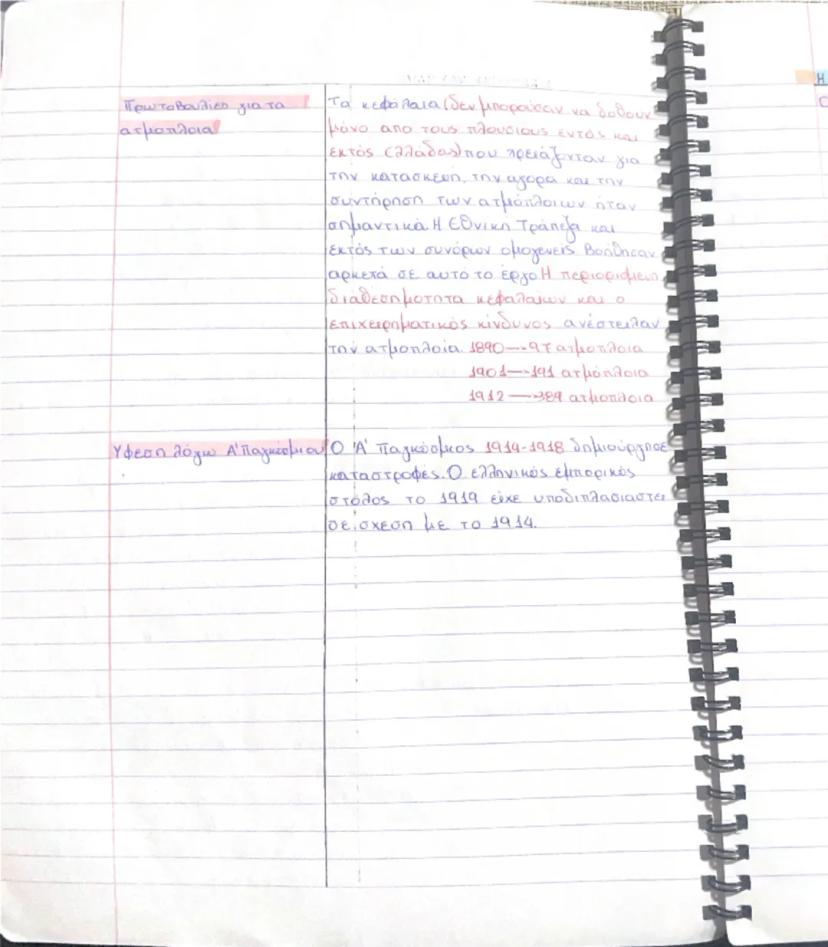 Πρωτοβουλίες για τα
ατμοπλοια
Τα κεφάλαια (δεν μπορούσαν να δοθούν
μόνο απο τους πλουσιους εντός και
εκτός Ελλάδας) που χρειάζονταν για
την κατασκευη, την αγορα και την
συντήρηση των ατμόπλοιων ήταν
σημαντικά. Η Εθνικη Τράπεζα και
εκτός των συνόρων ομογενείς βοήθησαν
αρκετά σε αυτό το έργο Η περιορισμενη
διαθεσημοτητα κεφαλαιων και ο
επιχειρηματικός κίνδυνος ανέστειλαν
την ατμοπλοία. 1890→97 ατμοπλοια
1901→191 ατμόπλοια
1912→389 ατμοπλοια
Υφεση λόγω Α' Παγκόσμιου
Ο 'Α' Παγκόσμιος 1914-1918 δημιούργησε
καταστροφές. Ο ελληνικός εμπορικός
στόλος το 1919 είχε υποδιπλασιαστει
σε σχεση με το 1914.
Η